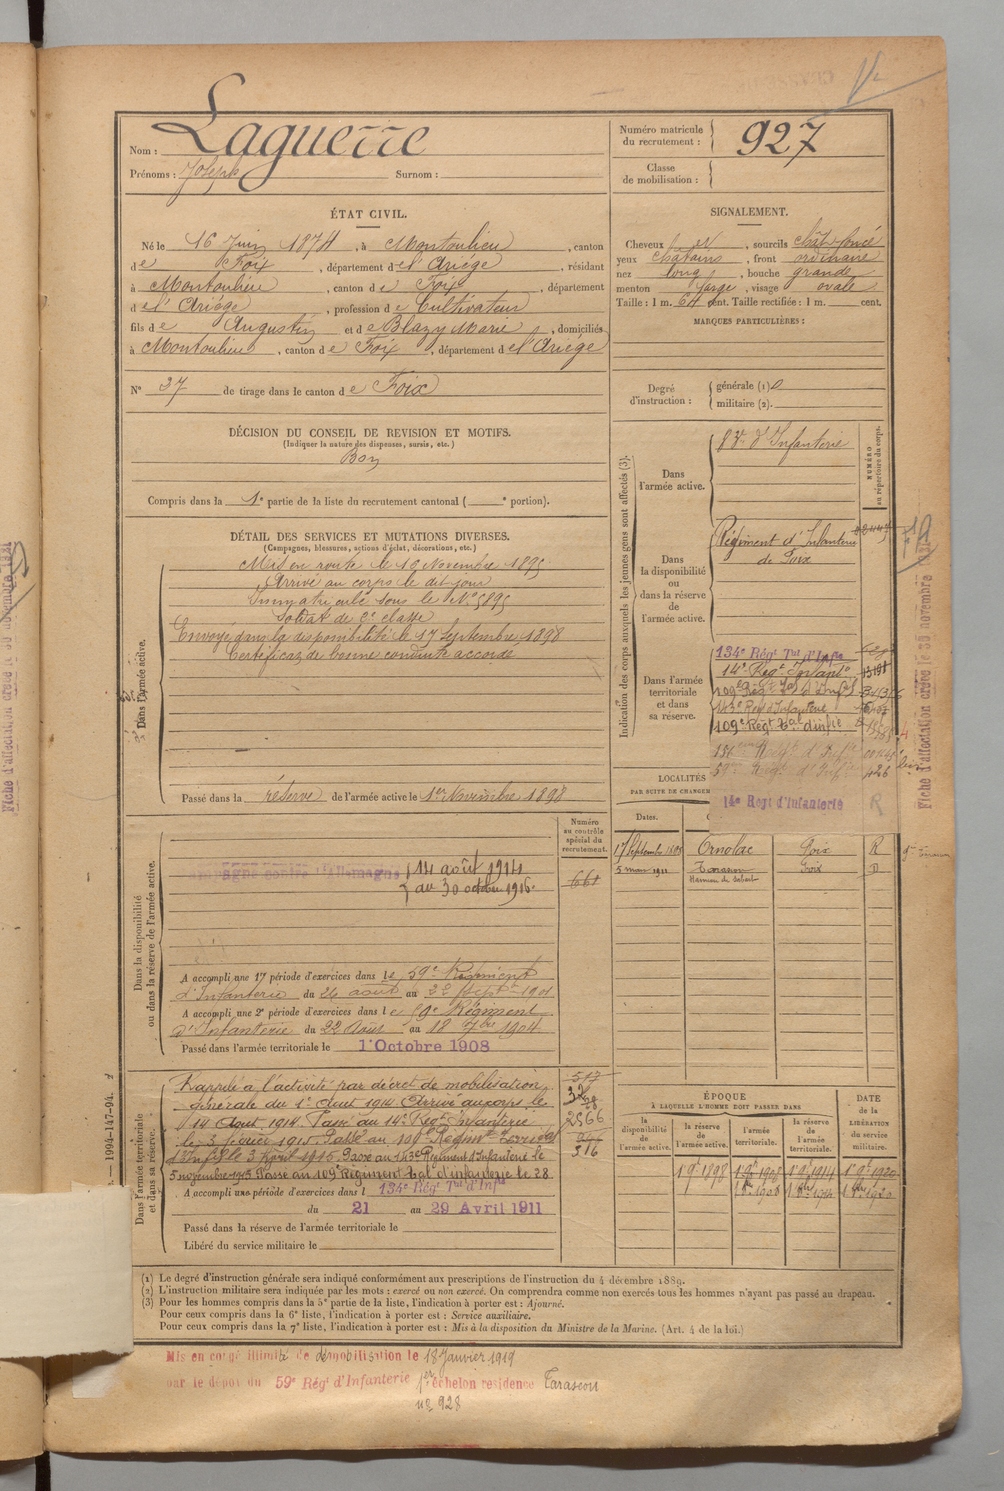 Nom : Laguerre
Prénoms : Joseph Surnom :
Numéro matricule du recrutement : 927
Classe de mobilisation :
ÉTAT CIVIL.
Né le 16 Juin 1874, à Montoulieu, canton
de Foix, département de l'Ariége, résidant
à Montoulieu, canton de Foix, département
de l'Ariége, profession de Cultivateur
fils de Augustin et de Blazy Marie, domiciliés
à Montoulieu, canton de Foix, département de l'Ariége
N° 37 de tirage dans le canton de Foix
DÉCISION DU CONSEIL DE REVISION ET MOTIFS.
(Indiquer la nature des dispenses, sursis, etc.)
Bon
Compris dans la 1e partie de la liste du recrutement cantonal ( e portion).
SIGNALEMENT.
Cheveux , sourcils chât. foncé
yeux châtains, front ordinaire
nez long, bouche grande
menton large, visage ovale
Taille : 1 m. 64 cent. Taille rectifiée : 1 m. cent.
MARQUES PARTICULIÈRES :
Degré d'instruction : générale (1)
militaire (2).
DÉTAIL DES SERVICES ET MUTATIONS DIVERSES.
(Campagnes, blessures, actions d'éclat, décorations, etc.)
Dans l'armée active.
Mis en route le Novembre 1895
Arrivé au corps le dit jour
Immatriculé sous le N° 5895
Soldat de 2e classe
Envoyé dans la disponibilité le 17 Septembre 1898
Certificat de bonne conduite accordé
Passé dans la réserve de l'armée active le 1er Novembre 1898
Indication des corps auxquels les jeunes gens sont affectés (3).
NUMÉRO au répertoire du corps.
Dans l'armée active.
d'Infanterie
Dans la disponibilité ou dans la réserve de l'armée active.
Régiment d'Infanterie
de Foix
Dans l'armée territoriale et dans sa réserve.
134e Régt Tal d'Infie
14e Régt Infant
143e Reg d'Infanterie
109e Régt Tal d'infie
14e Regt d'Infanterie
R
LOCALITÉS
PAR SUITE DE CHANGEM
Dates.
17 Septembre Ornolac Foix R
5 mars 1911 Tarascon Foix D
Numéro au contrôle spécial du recrutement.
Dans la disponibilité ou dans la réserve de l'armée active.
Campagne contre l'Allemagne 14 août 1914
au 30 octobre 1916
661
A accompli une 1e période d'exercices dans le 59e Régiment
d'Infanterie du 26 août au 22 Sept 1901
A accompli une 2e période d'exercices dans le 59e Régiment
d'Infanterie du 22 Août au 18 7bre 1904
Passé dans l'armée territoriale le 1er Octobre 1908
Dans l'armée territoriale et dans sa réserve.
Rappelé à l'activité par décret de mobilisation
générale du 1er Août 1914 Arrivé au corps le
14 Août 1914. Passé au 14e Régt Infanterie
le 3 février 1915. Passé au 109e Régimt Territal
d'Infie le 3 Août 1915. Passé au 143e Régiment d'Infanterie le
5 novembre 1915 Passé au 109 Régiment Tal d'infanterie le 28
A accompli une période d'exercices dans l 134e Régt Tal d'Infie
du 21 au 29 Avril 1911
Passé dans la réserve de l'armée territoriale le
Libéré du service militaire le
517
2566
516
ÉPOQUE
À LAQUELLE L'HOMME DOIT PASSER DANS
la disponibilité de l'armée active.
la réserve de l'armée active.
l'armée territoriale.
la réserve de l'armée territoriale.
DATE de la LIBÉRATION du service militaire.
1 9e 1898 1 9e 1908 1 9e 1914 1 9e 1920
(1) Le degré d'instruction générale sera indiqué conformément aux prescriptions de l'instruction du 4 décembre 1889.
(2) L'instruction militaire sera indiquée par les mots : exercé ou non exercé. On comprendra comme non exercés tous les hommes n'ayant pas passé au drapeau.
(3) Pour les hommes compris dans la 5e partie de la liste, l'indication à porter est : Ajourné.
Pour ceux compris dans la 6e liste, l'indication à porter est : Service auxiliaire.
Pour ceux compris dans la 7e liste, l'indication à porter est : Mis à la disposition du Ministre de la Marine. (Art. 4 de la loi.)
Mis en congé illimité de démobilisation le 18 Janvier 1919
par le dépôt du 59e Régt d'Infanterie 1er échelon résidence Tarascon
n° 928
Fiche d'affectation créée le 30 novembre
— 1994-147-94.